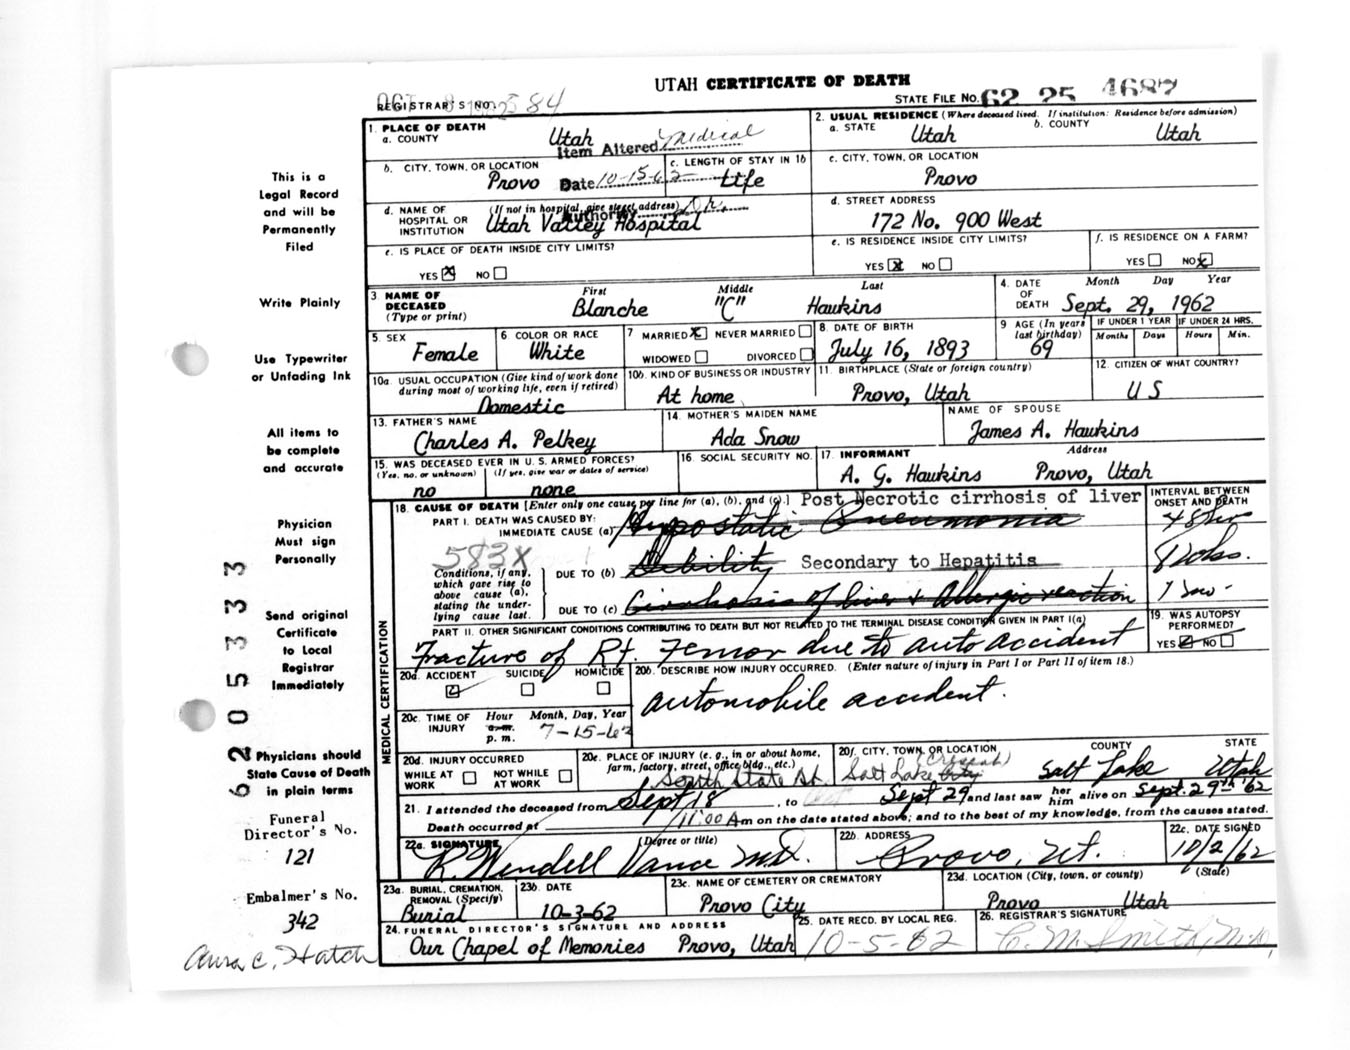 UTAH CERTIFICATE OF DEATH
REGISTRAR'S NO. 584
STATE FILE NO. 62 25 4687
1. PLACE OF DEATH
a. COUNTY Utah
Item Altered Medical
2. USUAL RESIDENCE (Where deceased lived. If institution: Residence before admission)
a. STATE Utah b. COUNTY Utah
b. CITY, TOWN, OR LOCATION Provo
Date 10-15-62
c. LENGTH OF STAY IN 1b Life
c. CITY, TOWN, OR LOCATION
Provo
d. NAME OF HOSPITAL OR INSTITUTION (If not in hospital, give street address)
Authority Dr.
Utah Valley Hospital
d. STREET ADDRESS
172 No. 900 West
e. IS PLACE OF DEATH INSIDE CITY LIMITS?
YES X NO
e. IS RESIDENCE INSIDE CITY LIMITS?
YES X NO
f. IS RESIDENCE ON A FARM?
YES NO X
3. NAME OF DECEASED (Type or print)
First Middle Last
Blanche "C" Hawkins
4. DATE OF DEATH Month Day Year
Sept. 29, 1962
5. SEX
Female
6 COLOR OR RACE
White
7 MARRIED X NEVER MARRIED
WIDOWED DIVORCED
8. DATE OF BIRTH
July 16, 1893
9 AGE (In years last birthday)
69
IF UNDER 1 YEAR IF UNDER 24 HRS.
Months Days Hours Min.
10a. USUAL OCCUPATION (Give kind of work done during most of working life, even if retired)
Domestic
10b. KIND OF BUSINESS OR INDUSTRY
At home
11. BIRTHPLACE (State or foreign country)
Provo, Utah
12. CITIZEN OF WHAT COUNTRY?
U S
13. FATHER'S NAME
Charles A. Pelkey
14. MOTHER'S MAIDEN NAME
Ada Snow
NAME OF SPOUSE
James A. Hawkins
15. WAS DECEASED EVER IN U. S. ARMED FORCES?
(Yes, no, or unknown) (If yes, give war or dates of service)
no none
16. SOCIAL SECURITY NO.
17. INFORMANT Address
A. G. Hawkins Provo, Utah
18. CAUSE OF DEATH [Enter only one cause per line for (a), (b), and (c).] Post Necrotic cirrhosis of liver
PART I. DEATH WAS CAUSED BY:
IMMEDIATE CAUSE (a) Hypostatic Pneumonia
583X
Conditions, if any, which gave rise to above cause (a), stating the underlying cause last.
DUE TO (b) Debility Secondary to Hepatitis
DUE TO (c) Cirrhosis of liver & Allergic reaction
INTERVAL BETWEEN ONSET AND DEATH
PART II. OTHER SIGNIFICANT CONDITIONS CONTRIBUTING TO DEATH BUT NOT RELATED TO THE TERMINAL DISEASE CONDITION GIVEN IN PART I(a)
Fracture of Rt. Femor due to auto accident
19. WAS AUTOPSY PERFORMED?
YES NO
MEDICAL CERTIFICATION
20a. ACCIDENT SUICIDE HOMICIDE
20b. DESCRIBE HOW INJURY OCCURRED. (Enter nature of injury in Part I or Part II of item 18.)
automobile accident.
20c. TIME OF INJURY Hour Month, Day, Year
a.m.
p. m. 7-15-62
20d. INJURY OCCURRED
WHILE AT WORK NOT WHILE AT WORK
20e. PLACE OF INJURY (e. g., in or about home, farm, factory, street, office bldg., etc.)
South State St.
20f. CITY, TOWN, OR LOCATION COUNTY STATE
Salt Lake City Salt Lake Utah
21. I attended the deceased from Sept 18, to Sept 29 and last saw her him alive on Sept. 29th '62
Death occurred at 11:00 A m on the date stated above; and to the best of my knowledge, from the causes stated.
22a. SIGNATURE (Degree or title)
R. Wendell Vance M.D.
22b. ADDRESS
Provo, Ut.
22c. DATE SIGNED
10/2/62
23a. BURIAL, CREMATION, REMOVAL (Specify)
Burial
23b. DATE
10-3-62
23c. NAME OF CEMETERY OR CREMATORY
Provo City
23d. LOCATION (City, town, or county) (State)
Provo Utah
24. FUNERAL DIRECTOR'S SIGNATURE AND ADDRESS
Our Chapel of Memories Provo, Utah
25. DATE RECD. BY LOCAL REG.
10-5-62
26. REGISTRAR'S SIGNATURE
C. M. Smith, M.D.
This is a
Legal Record
and will be
Permanently
Filed
Write Plainly
Use Typewriter
or Unfading Ink
All items to
be complete
and accurate
Physician
Must sign
Personally
Send original
Certificate
to Local
Registrar
Immediately
Physicians should
State Cause of Death
in plain terms
62 053333
Funeral
Director's No.
121
Embalmer's No.
342
C. Hatch